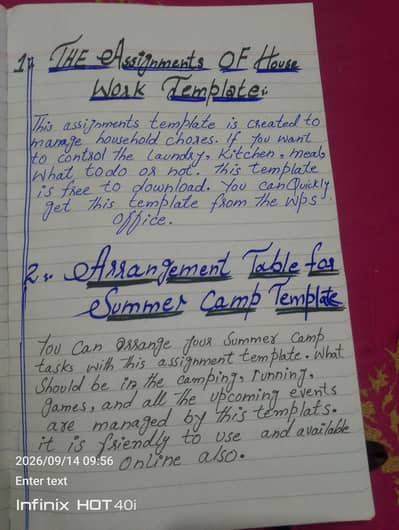 1:- THE Assignments OF House
Work Template:
This assignments template is created to
manage household chores. if you want
to control the laundry, Kitchen, meals
What todo or not. this template
is free to download. You can Quickly
get this template from the Wps
Office.
2:- Arrangement Table for
Summer Camp Template
You Can arrange your Summer Camp
tasks with this assignment template. What
Should be in the camping, running,
games, and all the upcoming events
are managed by this templats.
it is friendly to use and available
Online also.
2026/09/14 09:56
Enter text
Infinix HOT 40i